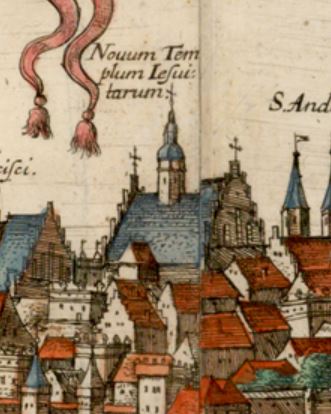 Nouum Tem
plum Iesui:
tarum.
S. And
cisci.